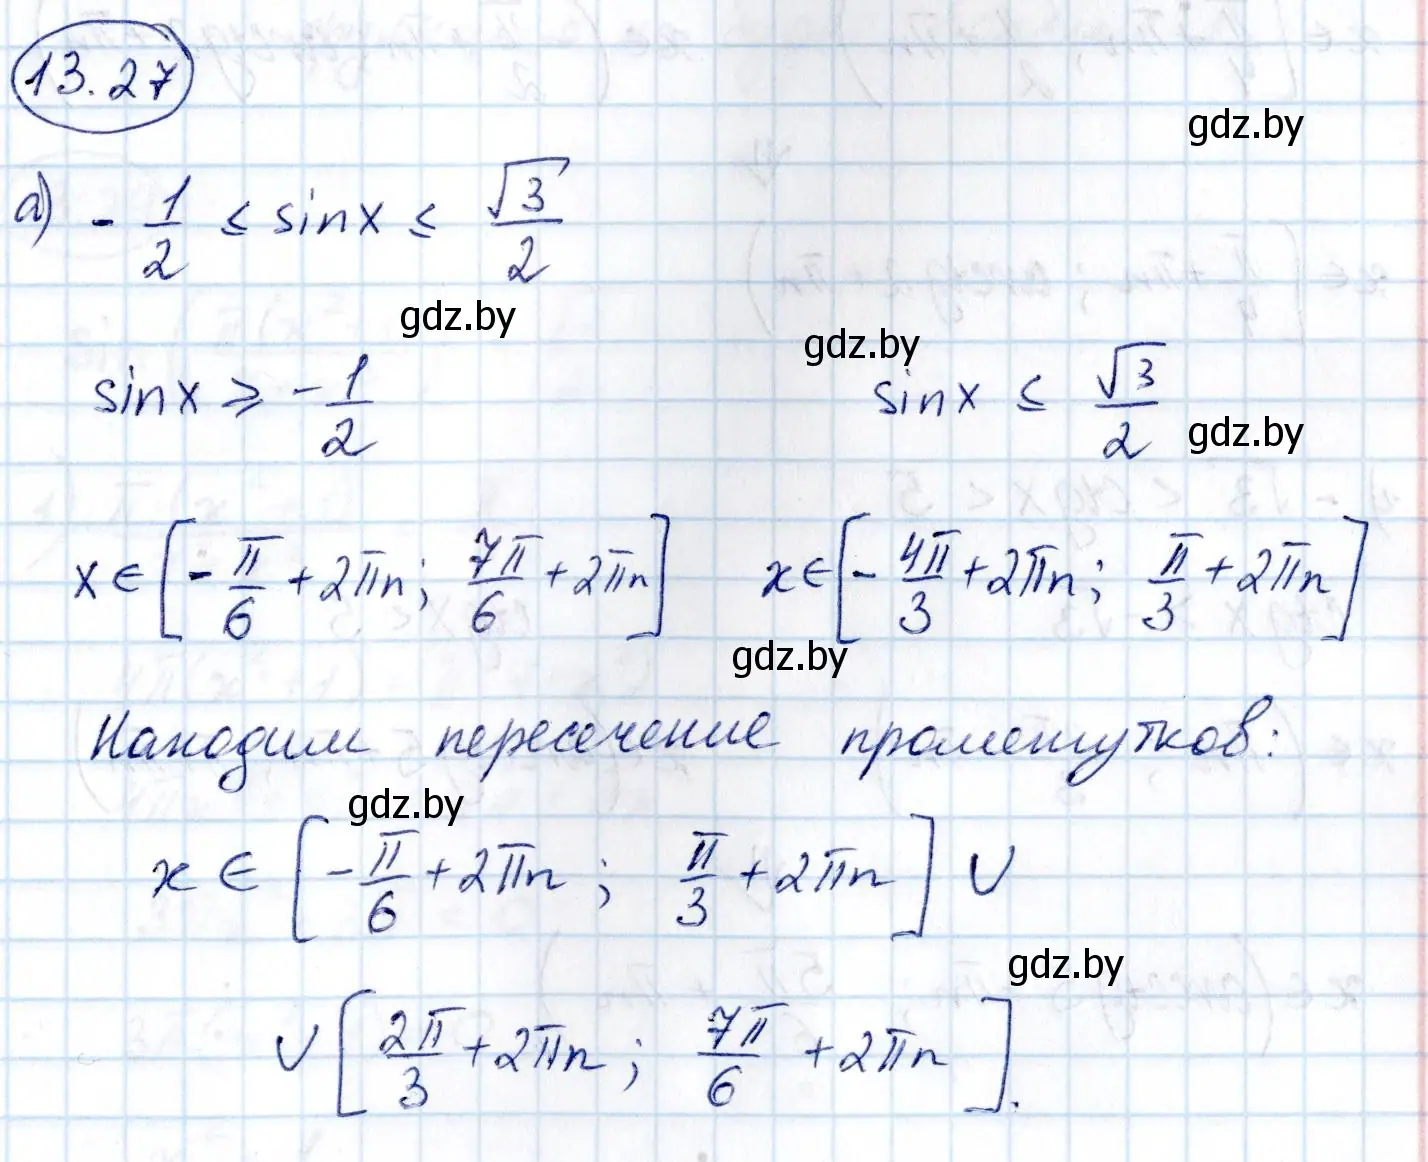 13.27
gdz.by
а) - 1/2 ≤ sinx ≤ √3/2
gdz.by
gdz.by
sinx ≥ -1/2 sinx ≤ √3/2
gdz.by
x ∈ [-π/6 + 2πn; 7π/6 + 2πn] x ∈ [-4π/3 + 2πn; π/3 + 2πn]
gdz.by
Находим пересечение промежутков:
gdz.by
x ∈ [-π/6 + 2πn; π/3 + 2πn] ∪
gdz.by
∪ [2π/3 + 2πn; 7π/6 + 2πn].